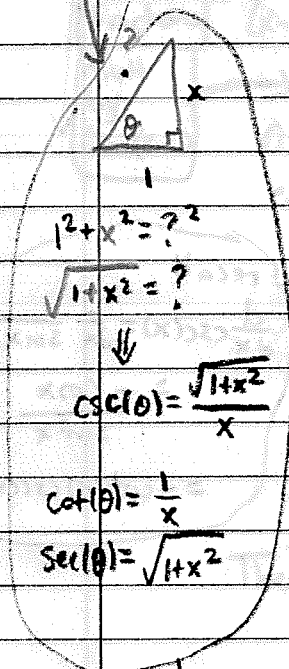 ?
x
θ
1
1² + x² = ?²
√(1+x²) = ?
⇓
csc(θ) = √(1+x²)/x
cot(θ) = 1/x
sec(θ) = √(1+x²)